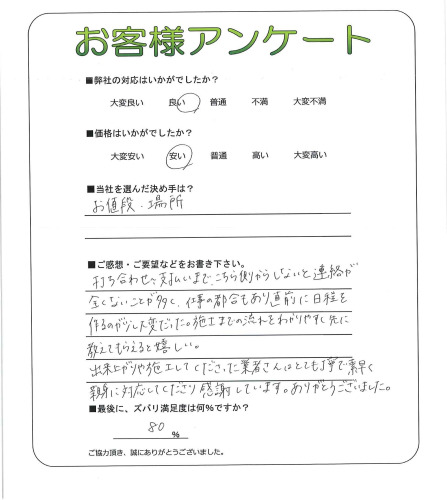 お客様アンケート
■弊社の対応はいかがでしたか？
大変良い 良い 普通 不満 大変不満
■価格はいかがでしたか？
大変安い 安い 普通 高い 大変高い
■当社を選んだ決め手は？
お値段・場所
■ご感想・ご要望などをお書き下さい。
打ち合わせ、支払いまで、こちら側からしないと連絡が
全くないことが多く、仕事の都合もあり直前に日程を
作るのが少し大変だった。施工までの流れをわかりやすく先に
教えてもらえると嬉しい。
出来上がりや施工してくださった業者さんはとても丁寧で素早く
親身に対応してくださり感謝しています。ありがとうございました。
■最後に、ズバリ満足度は何%ですか？
80 %
ご協力頂き、誠にありがとうございました。